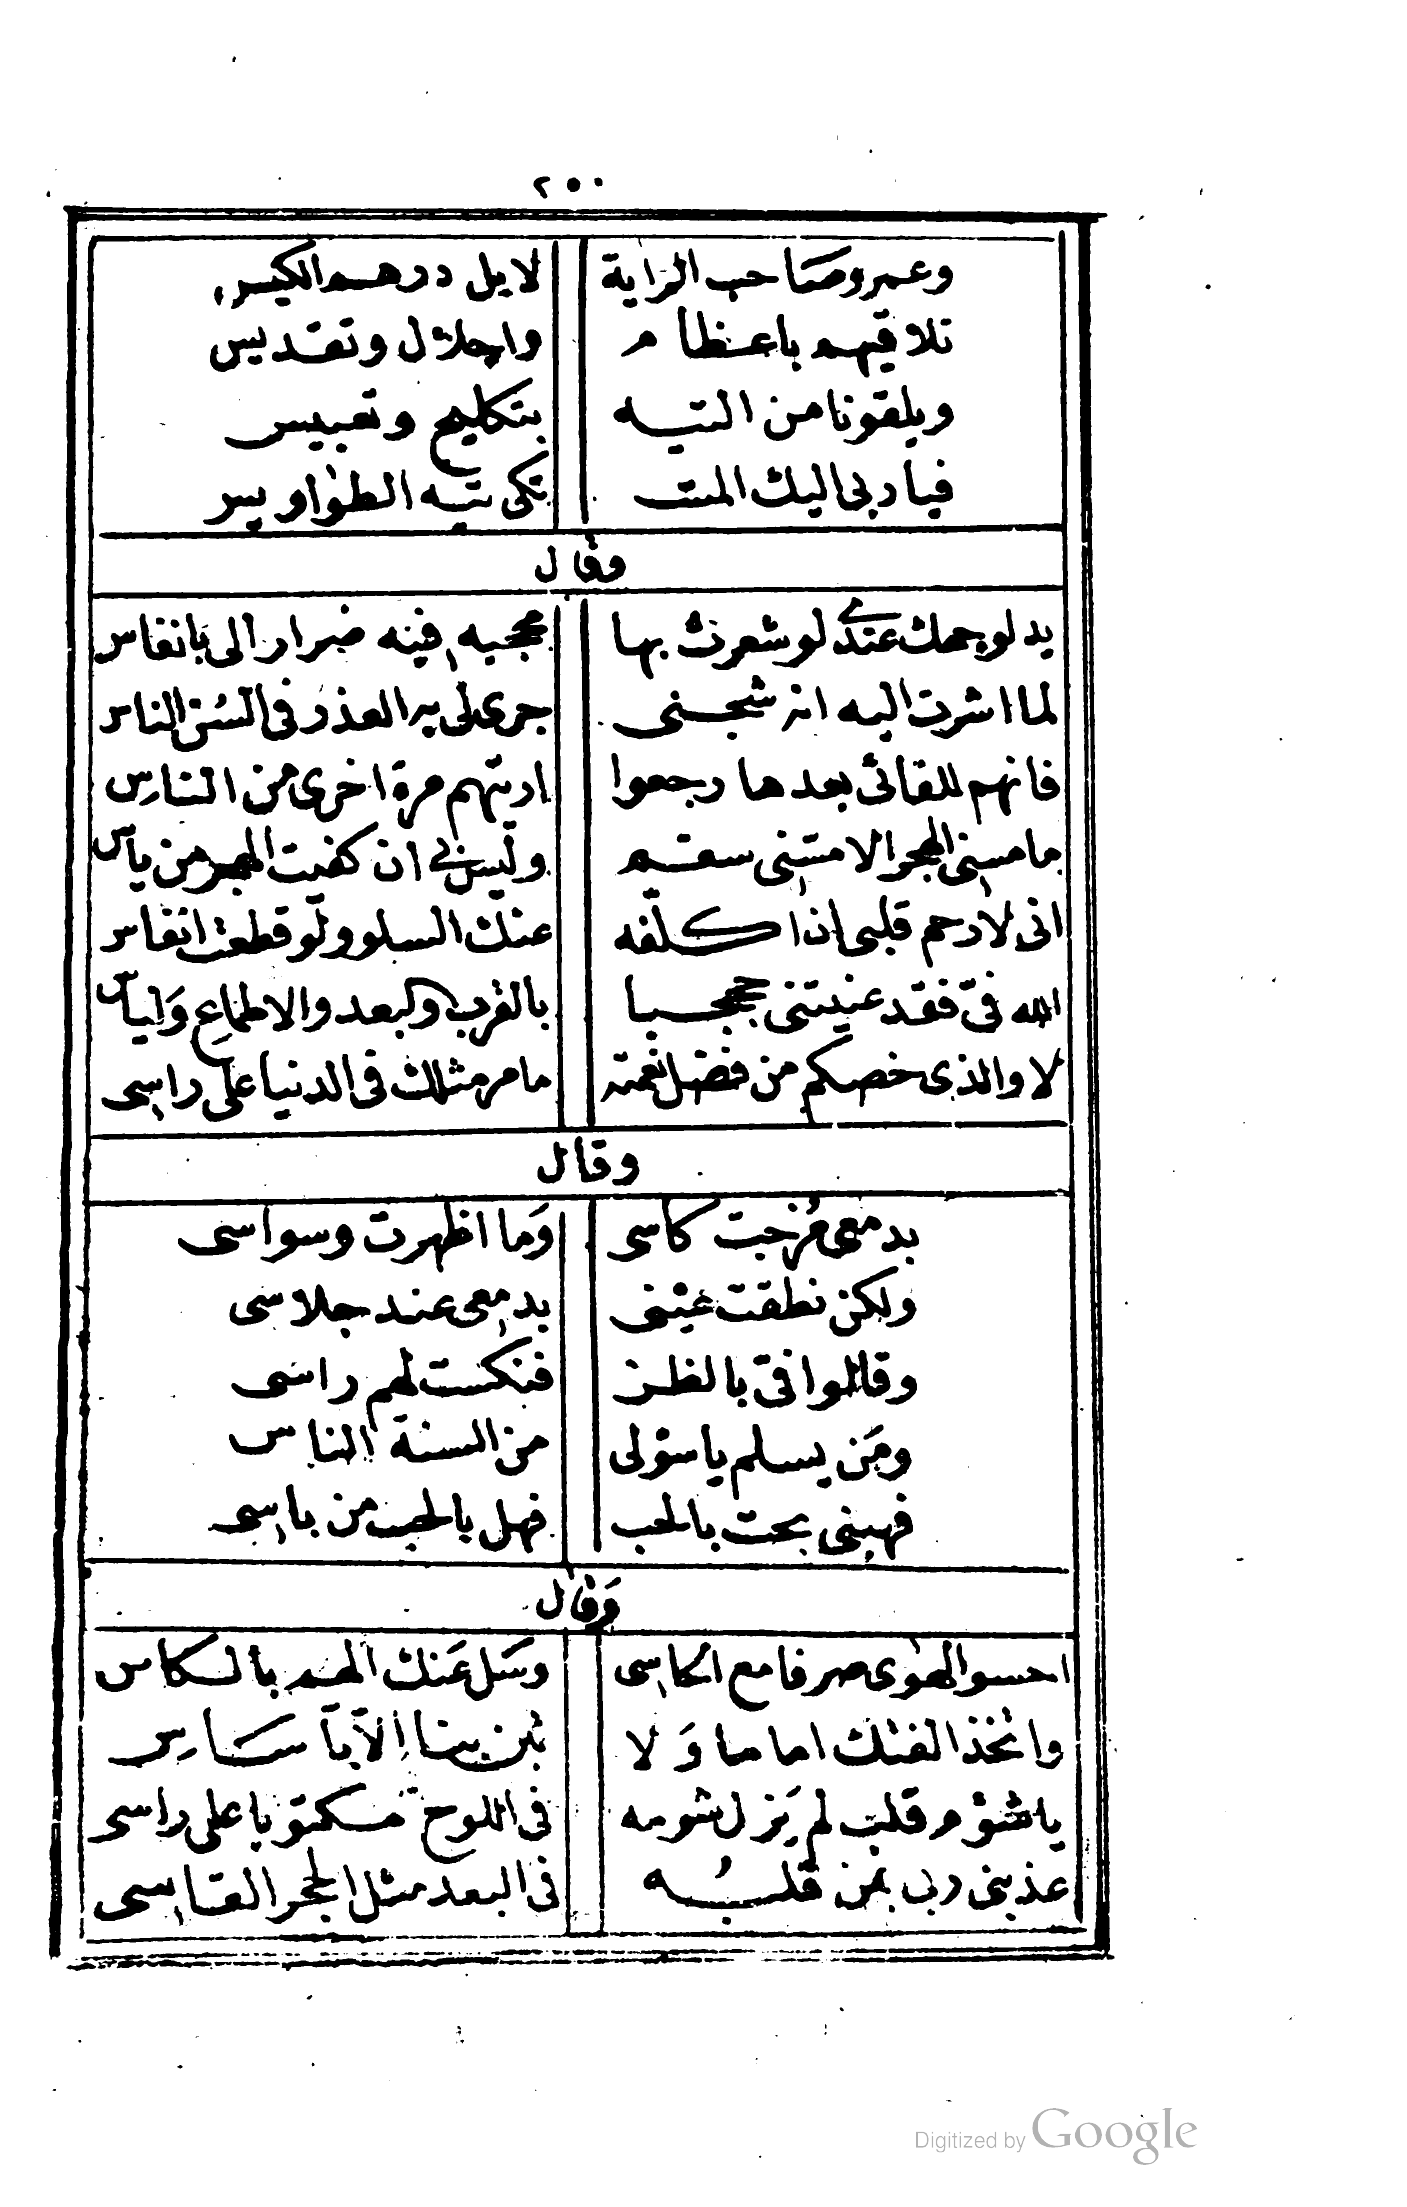 ٢٥٠
وعمرو صاحب الراية لا يل درهم الكيس
تلاقيهم باعظام واجلال وتقديس
ويلقونا من التيه بتكليح وتعبيس
فيا ربي اليك المشتكى تيه الطواويس
وقال
يد لوجهك عندي لو شعرت بها فيه ضرار الى بانفاس
لما اشرت اليه انه شجنى جرى لى به العذر فى السن الناس
فانهم للقائى بعدها رجعوا اريتهم مرة اخرى من الناس
ما مسنى الهجر الا مسنى سقم وليس لى ان كفيت الهجر من ياس
انى لا رحم قلبى ان اكلفه عنك السلو ولو قطعت انفاس
الله فى فقد بالقرب والبعد والاطماع والياس
لا والذى خصكم من فضل نعمته ما مر مثلك فى الدنيا على راسى
وقال
بدمعى مزجت كاسى وما اظهرت وسواسى
ولكن نطقت عينى بدمعى عند جلاسى
وقالوا فى بالظن فنكست لهم راسى
ومن يسلم يا سؤلى من السنة الناس
فهبنى بحت بالحب فهل بالحب من باسى
وقال
احسو الهوى صرفا مع الكاسى وسل عنك الهم بالكاس
واتخذ الفتك اماما ولا تبن بينا الا باساس
يا شؤم قلب لم يزل شومه فى اللوح مكتوبا على راسى
عذبنى ربى بمن قلبه فى البعد مثل الحجر القاسى
Digitized by Google